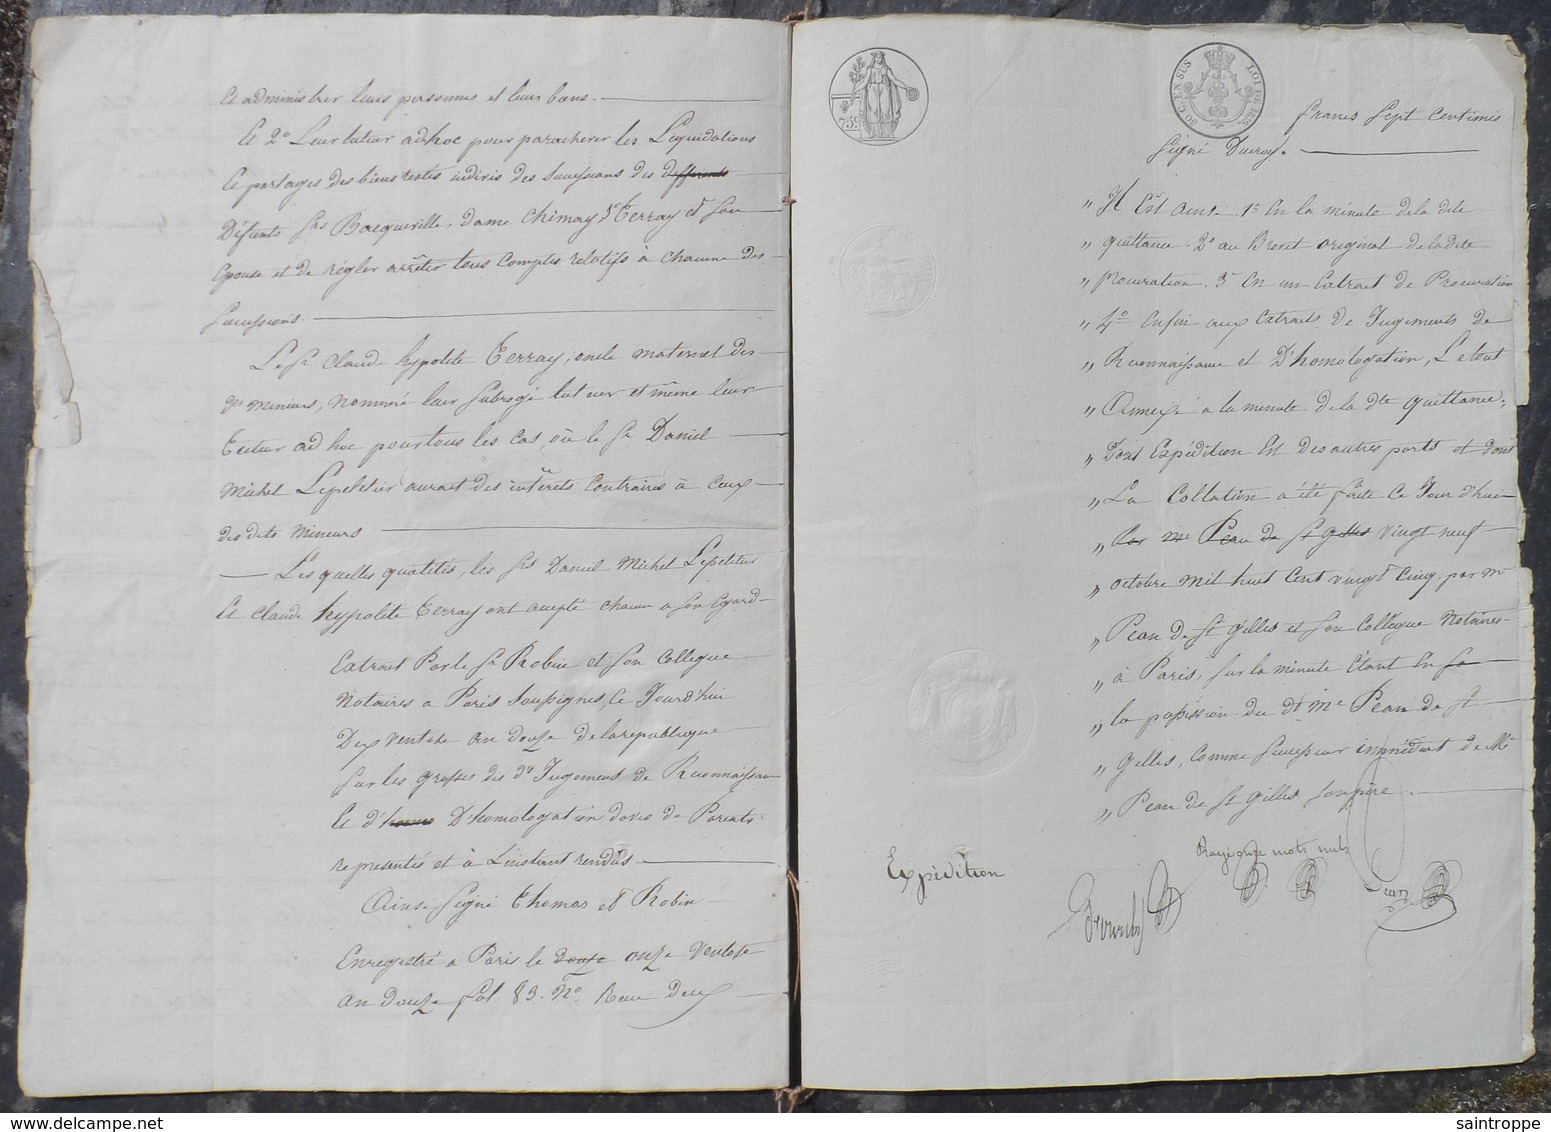 et administrer leurs personnes et leurs biens.
Et 2° Leur tuteur adhoc pour parachever les Liquidations
et partages des biens restés indivis des successions des differents
Défunts Srs Bacqueville, dame Chimay, Sr Terray et son
Epouse et de régler arrêter tous Comptes relatifs à chacune des
Successions.
Le Sr Claude hypolite Terray, oncle maternel des
dts mineurs, nommé leur Subrogé tuteur et même leur
tuteur ad hoc pour tous les cas, où le Sr Daniel
Michel Lepeletier aurait des intérêts Contraires à Ceux
des dits Mineurs
Lesquelles qualités, les Srs Daniel Michel Lepeletier
Et Claude hypolite Terray ont accepté chacun a son Egard
Extrait Par le Sr Robin et son Collegue
Notaires a Paris Soussignés, le Jourd'hui
Dix ventose an douze de la republique
Sur les grosses des ds Jugement de Reconnaissance
Et d'homo D'homologation d'avis de Parents
représentés et à L'instant rendus
Ainsi Signé Thomas et Robin
Enregistré a Paris le douze onze Ventose
an douze fol 83. No Reçu deux
75c.
60 C. EN SUS LOI DE
francs Sept Centimes
Signé Ducroy.
„ Il Est ainsi. 1° En la minute de la dite
„ quittance. 2° au Brevet original de la dite
„ procuration. 3° En un Extrait de Procuration
„ 4° Enfin aux extraits de Jugements de
„ Reconnaissance et D'homologation, Le tout
„ Annexé a la minute de la dte quittance,
„ Dont Expédition Est des autres parts et dont
„ La Collation a été faite Ce Jour d'hui
„ par Me Pean de St gilles vingt neuf
„ octobre mil huit Cent vingt Cinq, par Me
„ Pean de St gilles et son Collègue Notaires
„ à Paris, sur la minute Etant En sa
„ la possession du dt Me Pean de St
„ Gilles, Comme Successeur immédiat de Me
„ Pean de St gilles son père.
Rayé onze mots nuls
Expédition
Pean